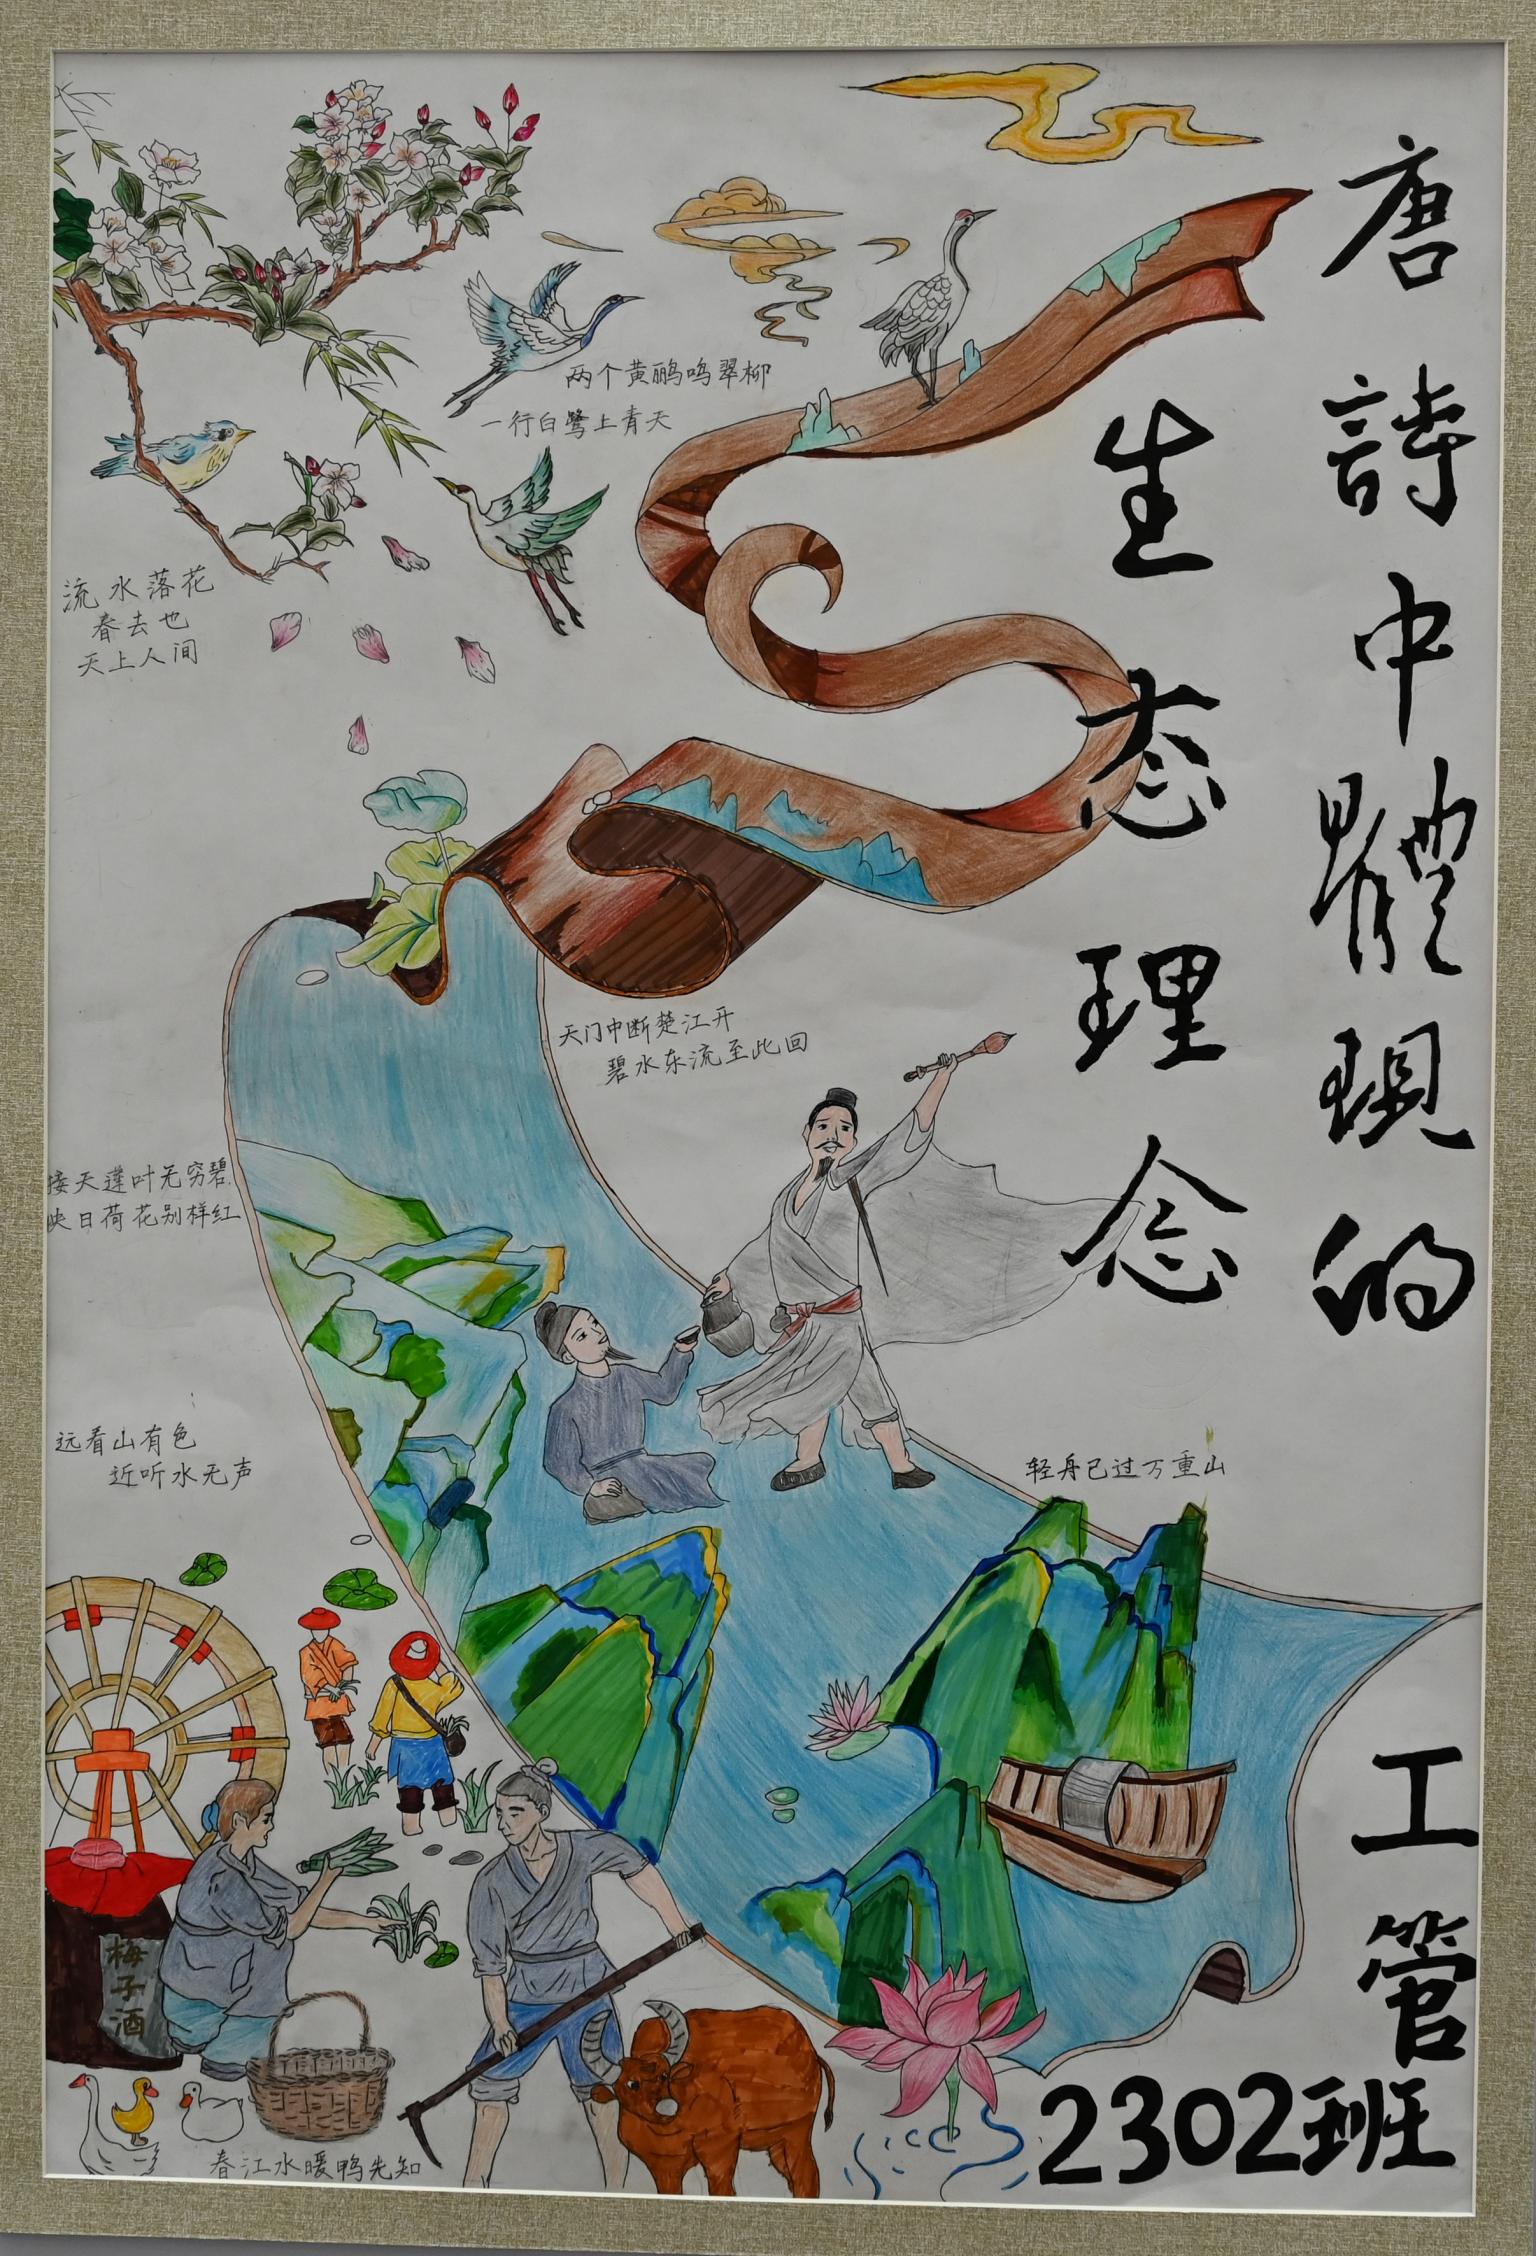 唐詩中體現的
生态理念
工管
2302班
两个黄鹂鸣翠柳
一行白鹭上青天
流水落花
春去也
天上人间
天门中断楚江开
碧水东流至此回
接天莲叶无穷碧
映日荷花别样红
远看山有色
近听水无声
轻舟已过万重山
梅子酒
春江水暖鸭先知